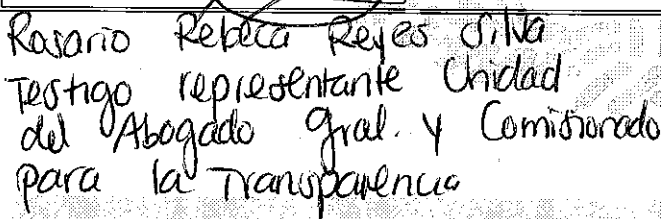 Rosario Rebeca Reyes Silva
Testigo representante Unidad
del Abogado Gral. y Comisionado
para la Transparencia